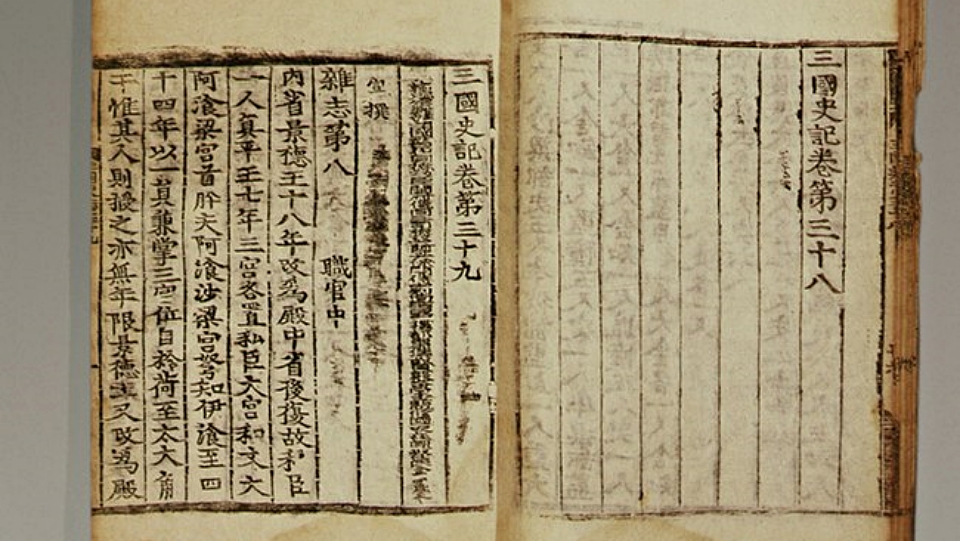 三國史記卷第三十八
三國史記卷第三十九
撰
雜志第八 職官中
內省景德王十八年改爲殿中省後復故私臣
一人真平王七年三宮各置私臣大宮和文大
阿飡梁宮首肹夫阿飡沙梁宮弩知伊飡至四
十四年以一員兼掌三宮位自衿荷至太大角
干惟其人則授之亦無年限景德王又改爲殿